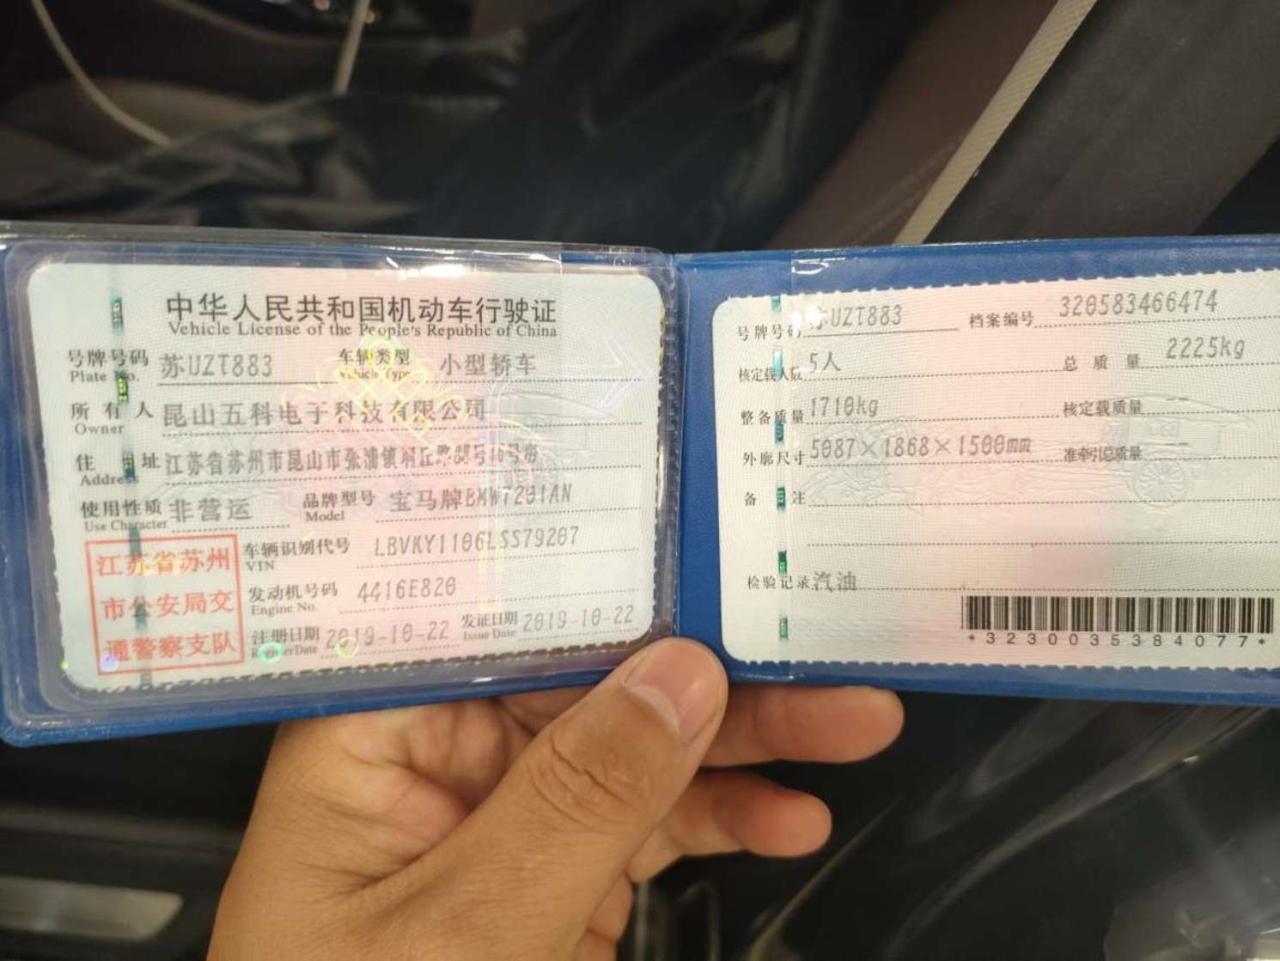 中华人民共和国机动车行驶证
Vehicle License of the People's Republic of China
号牌号码 苏UZT883 车辆类型 小型轿车
Plate No. Vehicle Type
所有人 昆山五科电子科技有限公司
Owner
住址 江苏省苏州市昆山市张浦镇
Address
使用性质 非营运 品牌型号 宝马牌BMW7201AN
Use Character Model
江苏省苏州
市公安局交
通警察支队
车辆识别代号 LBVKY1106LSS79207
VIN
发动机号码 4416E820
Engine No.
注册日期 2019-10-22 发证日期 2019-10-22
Register Date Issue Date
号牌号码 苏UZT883 档案编号 320583466474
核定载人数 5人 总质量 2225kg
整备质量 1710kg 核定载质量 --
外廓尺寸 5087×1868×1500mm 准牵引总质量 --
备注
检验记录 汽油
*3230035384077*